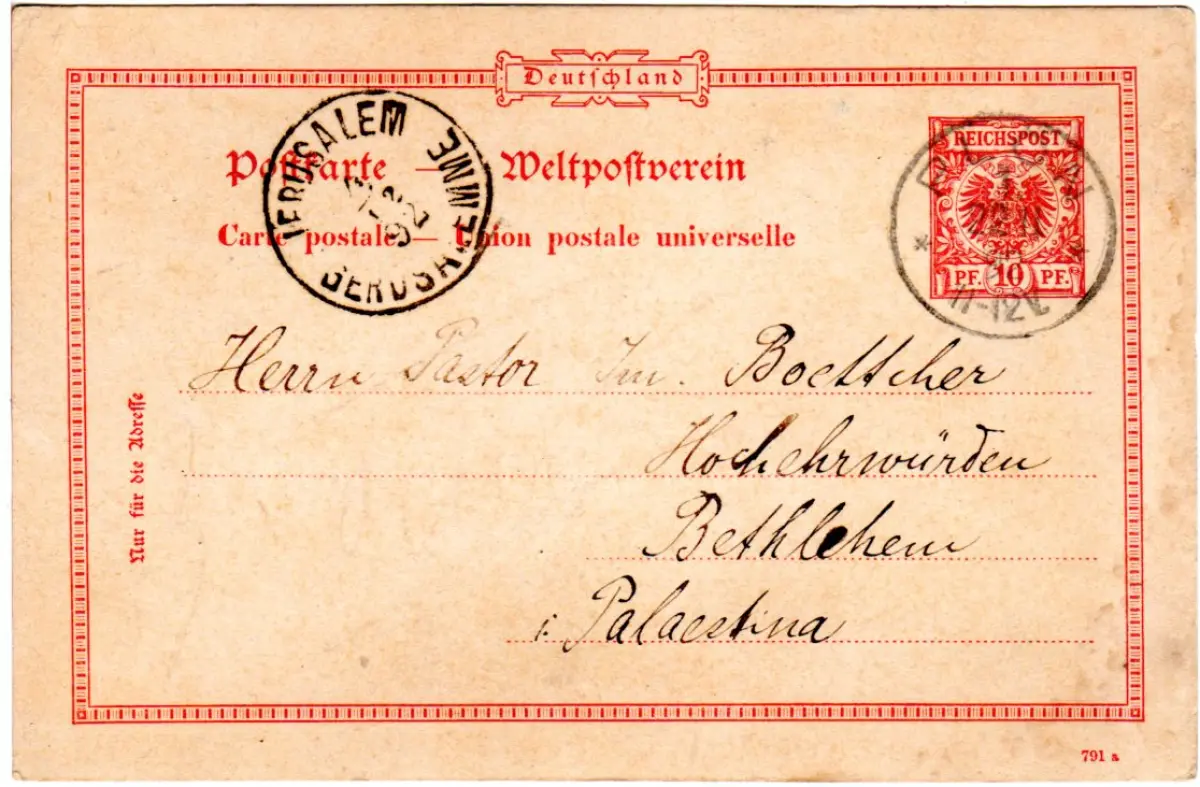 Deutschland
Postkarte — Weltpostverein
Carte postale — Union postale universelle
JERUSALEM
GERUSALEMME
92
REICHSPOST
PF. 10 PF.
11-12V.
Herrn Pastor Im. Boettcher
Hochehrwürden
Bethlehem
i. Palaestina
Nur für die Adresse
791 a